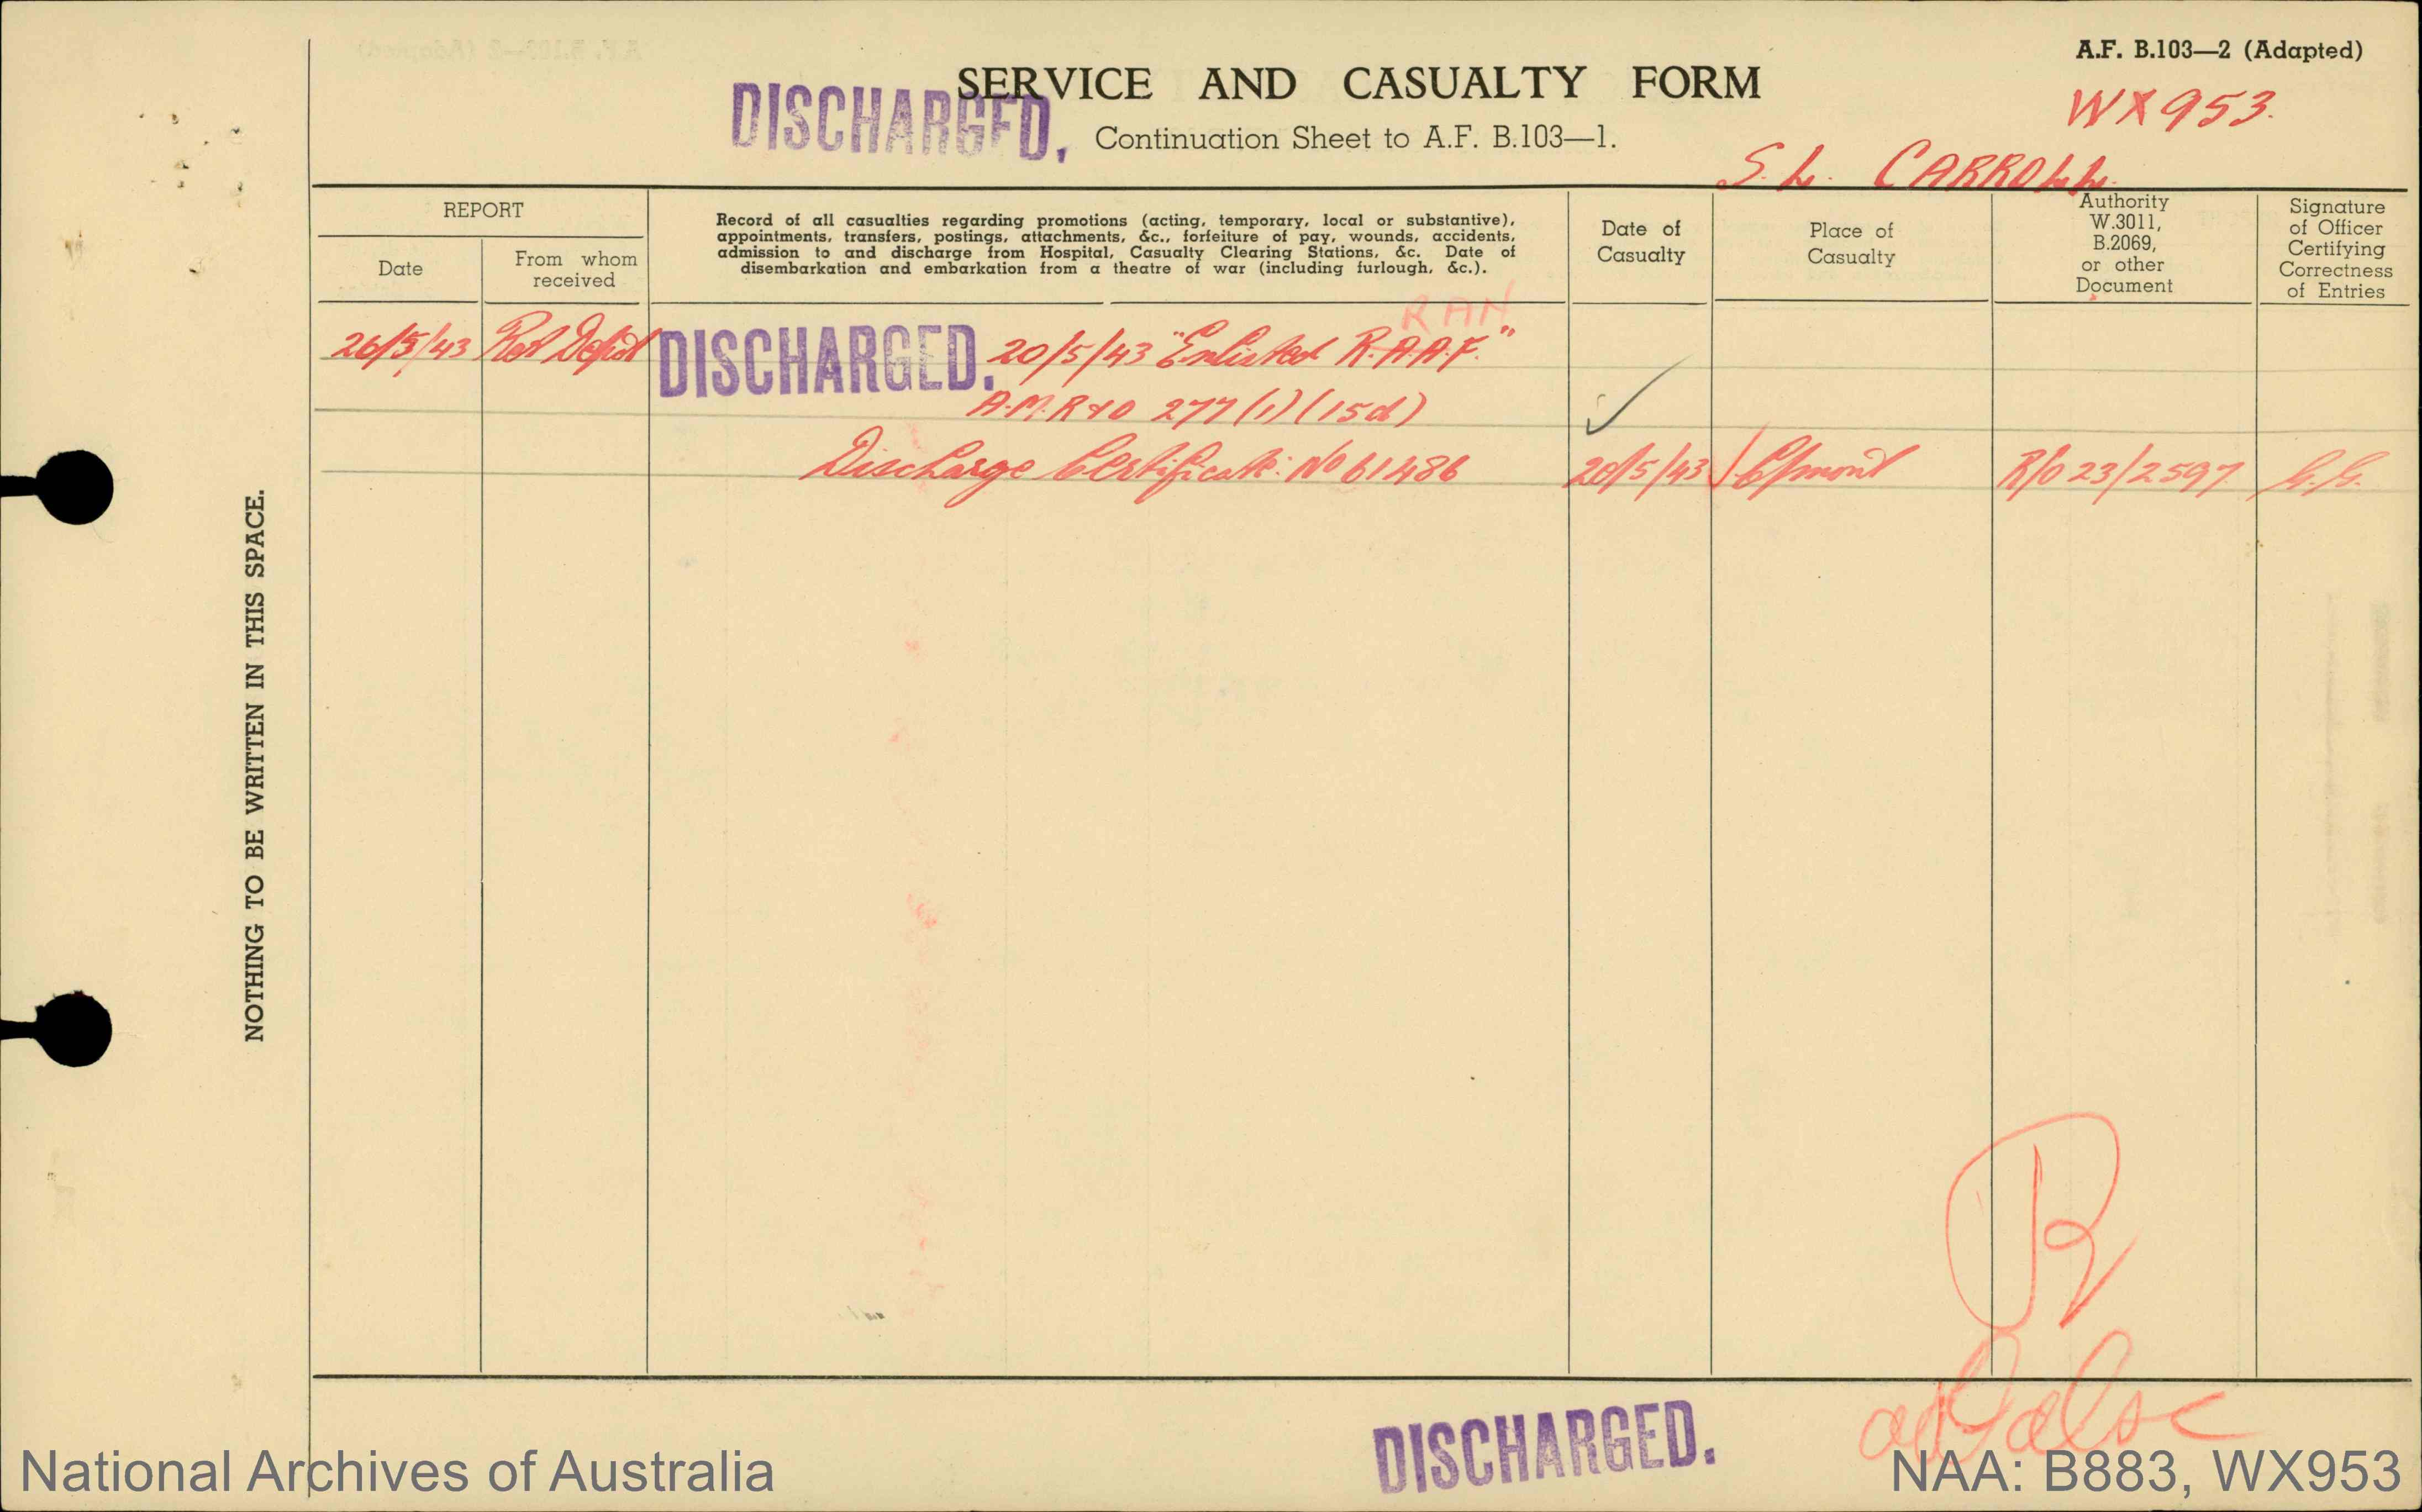 A.F. B.103—2 (Adapted)
SERVICE AND CASUALTY FORM
WX953.
DISCHARGED.
Continuation Sheet to A.F. B.103—1.
S.L. CARROLL.
REPORT
Date
From whom
received
Record of all casualties regarding promotions (acting, temporary, local or substantive),
appointments, transfers, postings, attachments, &c., forfeiture of pay, wounds, accidents,
admission to and discharge from Hospital, Casualty Clearing Stations, &c. Date of
disembarkation and embarkation from a theatre of war (including furlough, &c.).
Date of
Casualty
Place of
Casualty
Authority
W.3011,
B.2069,
or other
Document
Signature
of Officer
Certifying
Correctness
of Entries
RAN
26/5/43 DISCHARGED. 20/5/43 "Enlisted R.A.A.F."
A.M.R&O 277 (1) (15d)
Discharge Certificate: No 61486 20/5/43 C/mont R/O 23/2597 G.G.
NOTHING TO BE WRITTEN IN THIS SPACE.
R
DISCHARGED.
National Archives of Australia
NAA: B883, WX953